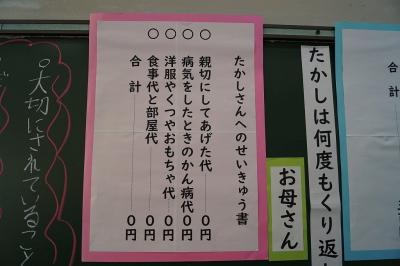 たかしさんへのせいきゅう書
○ 親切にしてあげた代 0円
○ 病気をしたときのかん病代 0円
○ 洋服やくつやおもちゃ代 0円
○ 食事代と部屋代 0円
合計 0円
お母さん
たかしは何度もくり返
大切にされていること